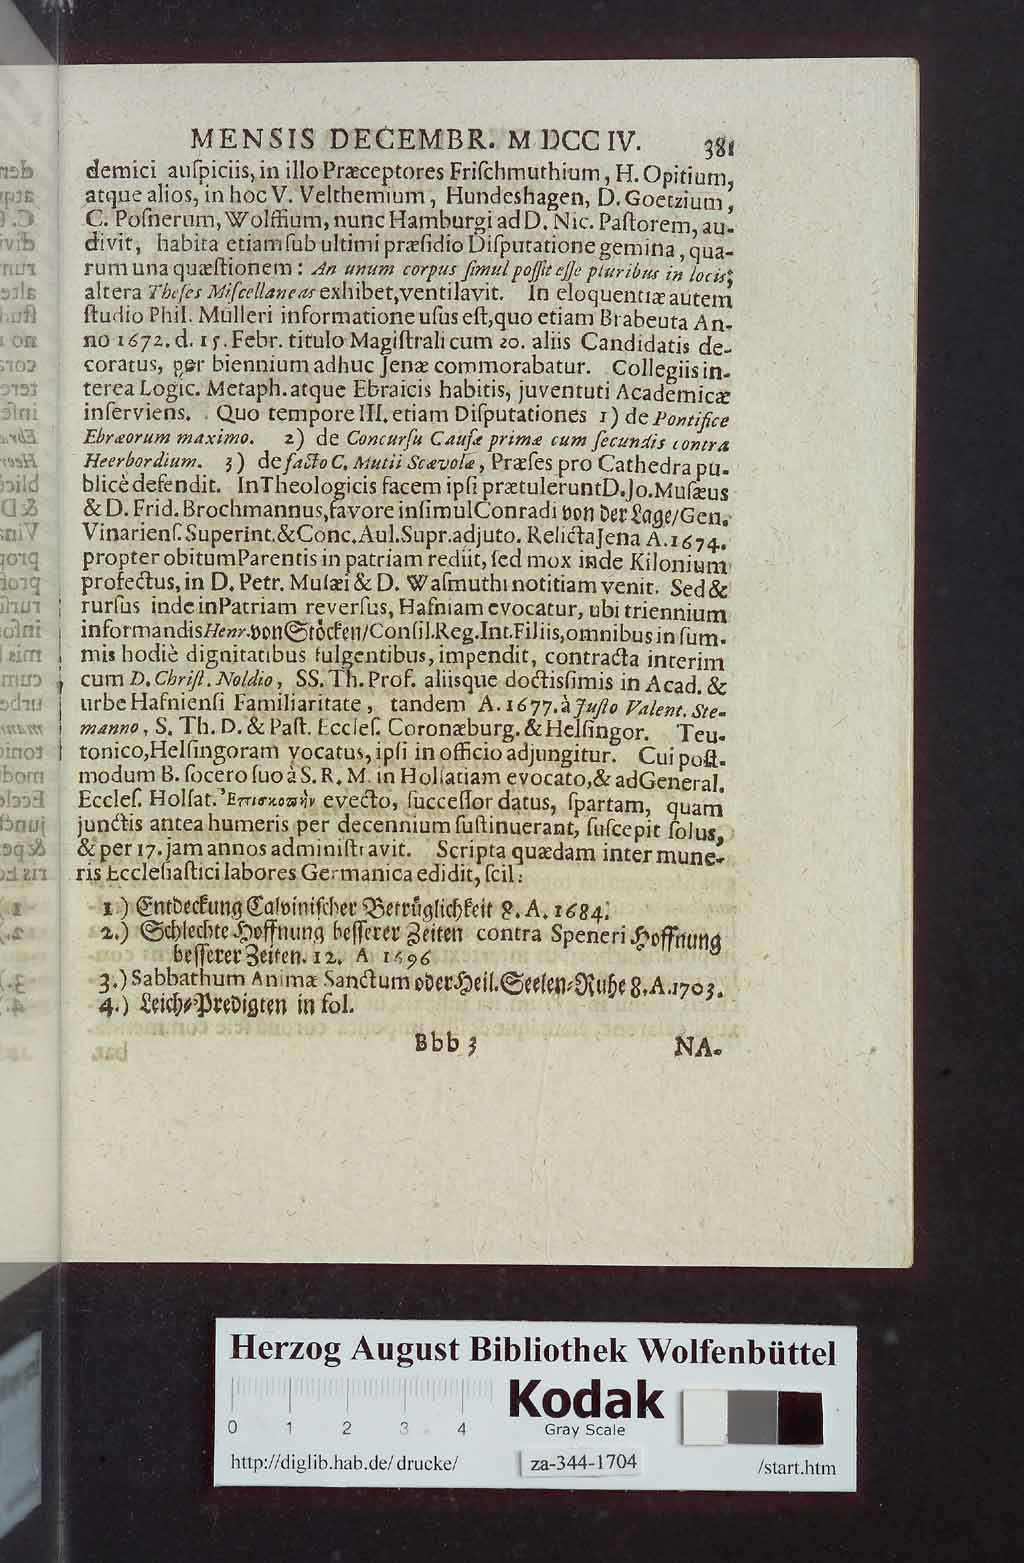 MENSIS DECEMBR. M DCC IV. 381
demici auſpiciis, in illo Præceptores Friſchmuthium, H. Opitium,
atque alios, in hoc V. Velthemium, Hundeshagen, D. Goetzium,
C. Poſnerum, Wolffium, nunc Hamburgi ad D. Nic. Paſtorem, au-
divit, habita etiam ſub ultimi præſidio Diſputatione gemina, qua-
rum una quæſtionem: An unum corpus ſimul poſſit eſſe pluribus in locis;
altera Theſes Miſcellaneas exhibet, ventilavit. In eloquentiæ autem
ſtudio Phil. Mülleri informatione uſus eſt, quo etiam Brabeuta An-
no 1672. d. 15. Febr. titulo Magiſtrali cum 20. aliis Candidatis de-
coratus, per biennium adhuc Jenæ commorabatur. Collegiis in-
terea Logic. Metaph. atque Ebraicis habitis, juventuti Academicæ
inſerviens. Quo tempore III. etiam Diſputationes 1) de Pontifice
Ebræorum maximo. 2) de Concurſu Cauſæ primæ cum ſecundis contra
Heerbordium. 3) de facto C. Mutii Scævolæ, Præſes pro Cathedra pu-
blicè defendit. In Theologicis facem ipſi prætulerunt D. Jo. Muſæus
& D. Frid. Brochmannus, favore inſimul Conradi von der Lage/ Gen.
Vinarienſ. Superint. & Conc. Aul. Supr. adjuto. Relicta Jena A. 1674.
propter obitum Parentis in patriam rediit, ſed mox inde Kilonium
profectus, in D. Petr. Muſæi & D. Waſmuthi notitiam venit. Sed &
rurſus inde in Patriam reverſus, Hafniam evocatur, ubi triennium
informandis Henr. von Stöcken/ Conſil. Reg. Int. Filiis, omnibus in ſum-
mis hodiè dignitatibus fulgentibus, impendit, contracta interim
cum D. Chriſt. Noldio, SS. Th. Prof. aliisque doctiſſimis in Acad. &
urbe Hafnienſi Familiaritate, tandem A. 1677. à Juſto Valent. Ste-
manno, S. Th. D. & Paſt. Eccleſ. Coronæburg. & Helſingor. Teu-
tonico, Helſingoram vocatus, ipſi in officio adjungitur. Cui poſt-
modum B. ſocero ſuo à S. R. M. in Holſatiam evocato, & ad General.
Eccleſ. Holſat. Ἐπισκοπὴν evecto, ſucceſſor datus, ſpartam, quam
junctis antea humeris per decennium ſuſtinuerant, ſuſcepit ſolus,
& per 17. jam annos adminiſtravit. Scripta quædam inter mune-
ris Eccleſiaſtici labores Germanica edidit, ſcil:
1.) Entdeckung Calviniſcher Betrüglichkeit 8. A. 1684.
2.) Schlechte Hoffnung beſſerer Zeiten contra Speneri Hoffnung
beſſerer Zeiten. 12. A 1696
3.) Sabbathum Animæ Sanctum oder Heil. Seelen-Ruhe 8. A. 1703.
4.) Leich-Predigten in fol.
Bbb 3 NA-
Herzog August Bibliothek Wolfenbüttel
Kodak
Gray Scale
0 1 2 3 4
http://diglib.hab.de/drucke/ za-344-1704 /start.htm